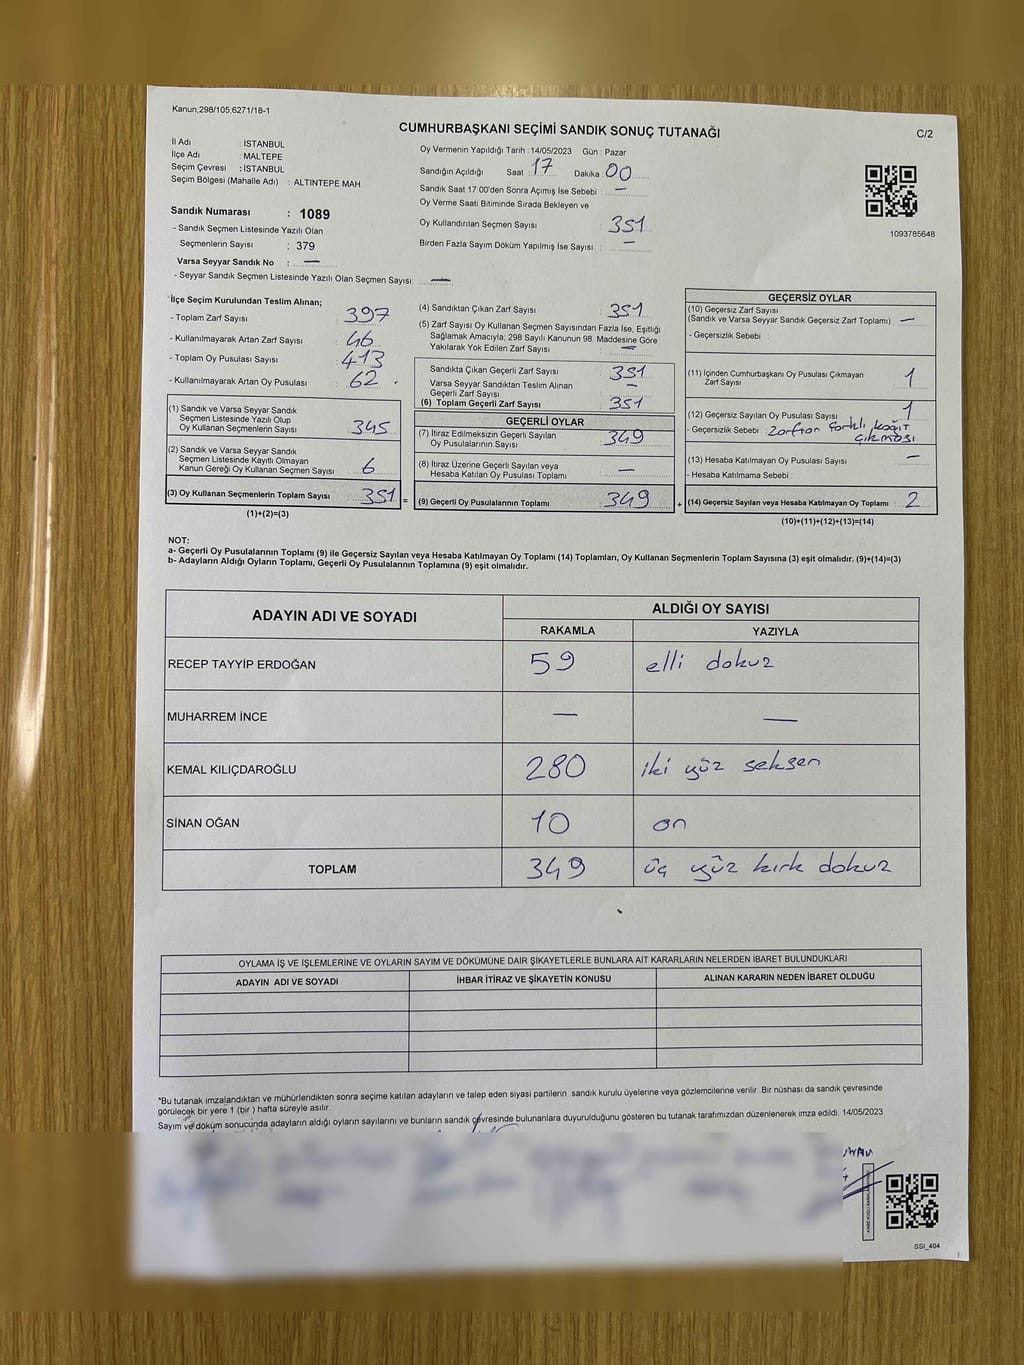 Kanun,298/105;6271/18-1
CUMHURBAŞKANI SEÇİMİ SANDIK SONUÇ TUTANAĞI
C/2
İl Adı : İSTANBUL
İlçe Adı : MALTEPE
Seçim Çevresi : İSTANBUL
Seçim Bölgesi (Mahalle Adı) : ALTINTEPE MAH
Sandık Numarası : 1089
- Sandık Seçmen Listesinde Yazılı Olan
Seçmenlerin Sayısı : 379
Varsa Seyyar Sandık No : —
- Seyyar Sandık Seçmen Listesinde Yazılı Olan Seçmen Sayısı: —
Oy Vermenin Yapıldığı Tarih :14/05/2023 Gün : Pazar
Sandığın Açıldığı Saat 17 Dakika 00
Sandık Saat 17:00'den Sonra Açımış İse Sebebi : —
Oy Verme Saati Bitiminde Sırada Bekleyen ve
Oy Kullandırılan Seçmen Sayısı : 351
Birden Fazla Sayım Döküm Yapılmış İse Sayısı : —
1093785648
İlçe Seçim Kurulundan Teslim Alınan;
- Toplam Zarf Sayısı : 397
- Kullanılmayarak Artan Zarf Sayısı : 46
- Toplam Oy Pusulası Sayısı : 413
- Kullanılmayarak Artan Oy Pusulası : 62
(1) Sandık ve Varsa Seyyar Sandık
Seçmen Listesinde Yazılı Olup
Oy Kullanan Seçmenlerin Sayısı : 345
(2) Sandık ve Varsa Seyyar Sandık
Seçmen Listesinde Kayıtlı Olmayan
Kanun Gereği Oy Kullanan Seçmen Sayısı : 6
(3) Oy Kullanan Seçmenlerin Toplam Sayısı : 351 =
(1)+(2)=(3)
(4) Sandıktan Çıkan Zarf Sayısı : 351
(5) Zarf Sayısı Oy Kullanan Seçmen Sayısından Fazla İse, Eşitliği
Sağlamak Amacıyla; 298 Sayılı Kanunun 98. Maddesine Göre
Yakılarak Yok Edilen Zarf Sayısı : —
Sandıkta Çıkan Geçerli Zarf Sayısı : 351
Varsa Seyyar Sandıktan Teslim Alınan
Geçerli Zarf Sayısı : —
(6) Toplam Geçerli Zarf Sayısı : 351
GEÇERLİ OYLAR
(7) İtiraz Edilmeksizin Geçerli Sayılan
Oy Pusulalarının Sayısı : 349
(8) İtiraz Üzerine Geçerli Sayılan veya
Hesaba Katılan Oy Pusulası Toplamı : —
(9) Geçerli Oy Pusulalarının Toplamı : 349 +
GEÇERSİZ OYLAR
(10) Geçersiz Zarf Sayısı
(Sandık ve Varsa Seyyar Sandık Geçersiz Zarf Toplamı) : —
- Geçersizlik Sebebi :
(11) İçinden Cumhurbaşkanı Oy Pusulası Çıkmayan
Zarf Sayısı : 1
(12) Geçersiz Sayılan Oy Pusulası Sayısı : 1
- Geçersizlik Sebebi : zarftan farklı kağıt
çıkması
(13) Hesaba Katılmayan Oy Pusulası Sayısı : —
- Hesaba Katılmama Sebebi :
(14) Geçersiz Sayılan veya Hesaba Katılmayan Oy Toplamı : 2
(10)+(11)+(12)+(13)=(14)
NOT:
a- Geçerli Oy Pusulalarının Toplamı (9) ile Geçersiz Sayılan veya Hesaba Katılmayan Oy Toplamı (14) Toplamları, Oy Kullanan Seçmenlerin Toplam Sayısına (3) eşit olmalıdır. (9)+(14)=(3)
b- Adayların Aldığı Oyların Toplamı, Geçerli Oy Pusulalarının Toplamına (9) eşit olmalıdır.
ADAYIN ADI VE SOYADI
ALDIĞI OY SAYISI
RAKAMLA YAZIYLA
RECEP TAYYİP ERDOĞAN 59 elli dokuz
MUHARREM İNCE — —
KEMAL KILIÇDAROĞLU 280 iki yüz seksen
SİNAN OĞAN 10 on
TOPLAM 349 üç yüz kırk dokuz
OYLAMA İŞ VE İŞLEMLERİNE VE OYLARIN SAYIM VE DÖKÜMÜNE DAİR ŞİKAYETLERLE BUNLARA AİT KARARLARIN NELERDEN İBARET BULUNDUKLARI
ADAYIN ADI VE SOYADI İHBAR İTİRAZ VE ŞİKAYETİN KONUSU ALINAN KARARIN NEDEN İBARET OLDUĞU
*Bu tutanak imzalandıktan ve mühürlendikten sonra seçime katılan adayların ve talep eden siyasi partilerin sandık kurulu üyelerine veya gözlemcilerine verilir. Bir nüshası da sandık çevresinde
görülecek bir yere 1 (bir ) hafta süreyle asılır.
Sayım ve döküm sonucunda adayların aldığı oyların sayılarını ve bunların sandık çevresinde bulunanlara duyurulduğunu gösteren bu tutanak tarafımızdan düzenlenerek imza edildi. 14/05/2023
SSI_404